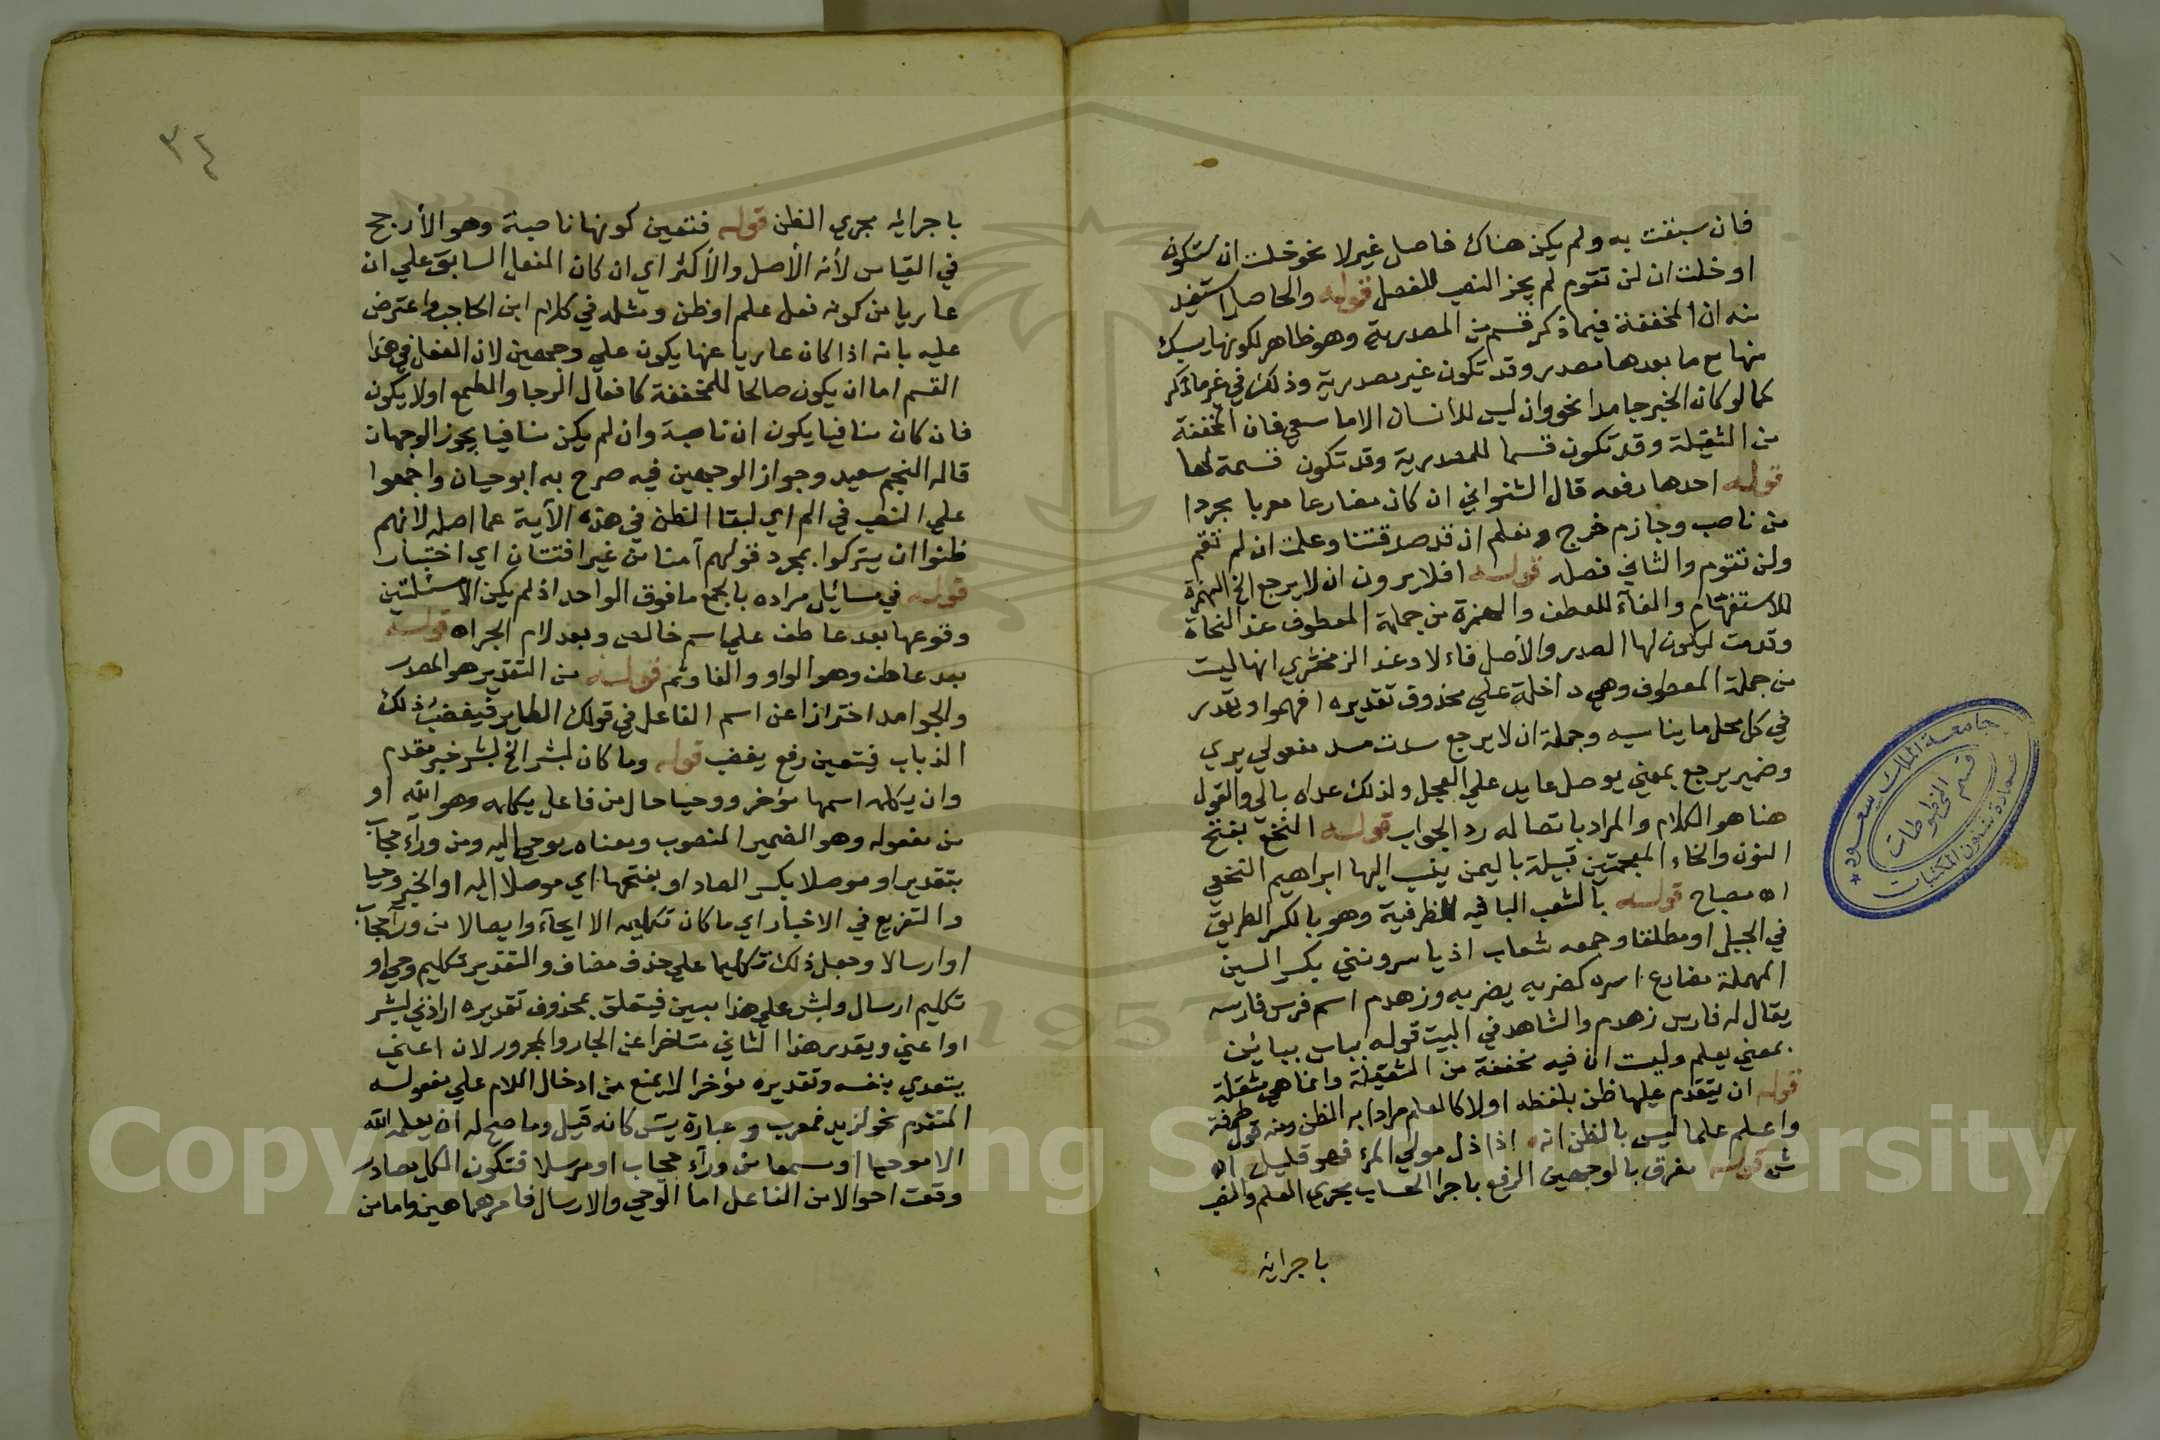 فان سبقت به ولم يكن هناك فاصل غير لا نحو خلت ان ستكون
او خلت ان لن تقوم لم يجز النصب للفصل قوله والحاصل استفيد
منه ان المخففة فيما ذكر قسم من المصدرية وهو ظاهر لكونها يسبك
منها مع ما بعدها مصدر وقد تكون غير مصدرية وذلك في غير ما ذكر
كما لو كان الخبر جامدا نحو وان ليس للأنسان الا ما سعي فان المخففة
من الثقيلة وقد تكون قسما للمصدرية وقد تكون قسمة لها
قوله احدها رفعه قال الشنواني ان كان مضارعا معربا مجردا
من ناصب وجازم خرج ونعلم ان قد صدقتنا وعلمت ان لم تقم
ولن تقوم والثاني فصله قوله افلا يرون ان لا يرجع الخ الهمزة
للاستفهام والفآء للعطف والهمزة من جملة المعطوف عند النحاة
وقدمت ليكون لها الصدر والأصل فاء لا وعند الزمخشري انها ليست
من جملة المعطوف وهي داخلة علي محذوف تقديره افهموا ويقدر
في كل محل ما يناسبه وجملة ان لا يرجع سدت مسد مفعولي يري
وضمير يرجع بمعني يوصل عايد علي العجل ولذلك عداه بالي والقول
هنا هو الكلام والمراد باتصاله رد الجواب قوله النخع بفتح
النون والخاء المعجمتين قبيلة باليمن ينسب اليها ابراهيم النخعي
اه مصباح قوله بالشعب البا فيه للظرفية وهو بالكسر الطريق
في الجبل او مطلقا وجمعه شعاب اذ ياسرونني بكسر السين
المهملة مضارع اسره كضربه يضربه وزهدم اسم فرس فارسه
يقال له فارس زهدم والشاهد في البيت قوله
بمعني يعلم وليست ان فيه مخففة من الثقيلة وانما هي مثقلة
قوله ان يتقدم عليها ظن بلفظه او لا كالعلم مرادا به الظن ومنه قول طرفة
واعلم علما ليس بالظن انه اذا ذل مولي المرء فهو ذليل اه
ش قوله مفرق بالوجهين الرفع باجرا الحساب مجري العلم والنصب
باجرائه
٣٤
باجرائه مجري الظن قوله فتعين كونها ناصبة وهو الأرجح
في القياس لأنه الأصل والأكثر اي ان كان الفعل السابق علي ان
عاريا من كونه فعل علم او ظن ومثله في كلام ابن الحاجب واعترض
عليه بانه اذا كان عاريا عنها يكون علي وجهين لان الفعل في هذا
القسم اما ان يكون صالحا للمخففة كافعال الرجا والطمع او لا يكون
فان كان منافيا يكون ان ناصبة وان لم يكن منافيا يجوز الوجهان
قاله النجم سعيد وجواز الوجهين فيه صرح به ابو حيان واجمعوا
علي النصب في الم اي لبقا الظن في هذه الآية عما اصله لانهم
ظنوا ان يتركوا بمجرد قولهم آمنا من غير افتتان اي اختبار
قوله في مسائل مراده بالجمع ما فوق الواحد اذ لم يكن الا مسئلتين
وقوعها بعد عاطف علي اسم خالص وبعد لام الجر اه قوله
بعد عاطف وهو الواو والفا وثم قوله من التقدير هو المصدر
والجوامد احترازا عن اسم الفاعل في قولك الطاير فيغضب ذلك
الذباب فيتعين رفع يغضب قوله وما كان لبشر الخ لبشر خبر مقدم
وان يكلمه اسمها مؤخر ووحيا حال من فاعل يكلمه وهو الله او
من مفعوله وهو الضمير المنصوب ومعناه يوحي اليه ومن ورآء حجاب
بتقدير او موصلا بكسر الصاد او بفتحها اي موصلا اليه او الخبر وحيا
والتفريع في الاخبار اي ما كان تكليمه الا ايحآء وايصالا من ورآء حجاب
او ارسالا وجعل ذلك تكليما علي حذف مضاف والتقدير تكليم وحي او
تكليم ارسال ولبشر علي هذا مبين فيتعلق بمحذوف تقديره ارادني لبشر
او اعني ويقدر هذا الثاني متاخرا عن الجار والمجرور لان اعني
يتعدي بنفسه وتقديره مؤخرا لا يمنع من ادخال اللام علي مفعوله
المتقدم نحو لزيد ضرب وعبارة يس كانه قيل وما صح له ان يعلمه الله
الا موحيا او مسمعا من ورآء حجاب او مرسلا فتكون الكل مصادر
وقعت احوالا من الفاعل اما الوحي والارسال فامرهما هين واما من
جامعة الملك سعود
قسم المخطوطات
عمادة شئون المكتبات
Copyright © King Saud University
1957